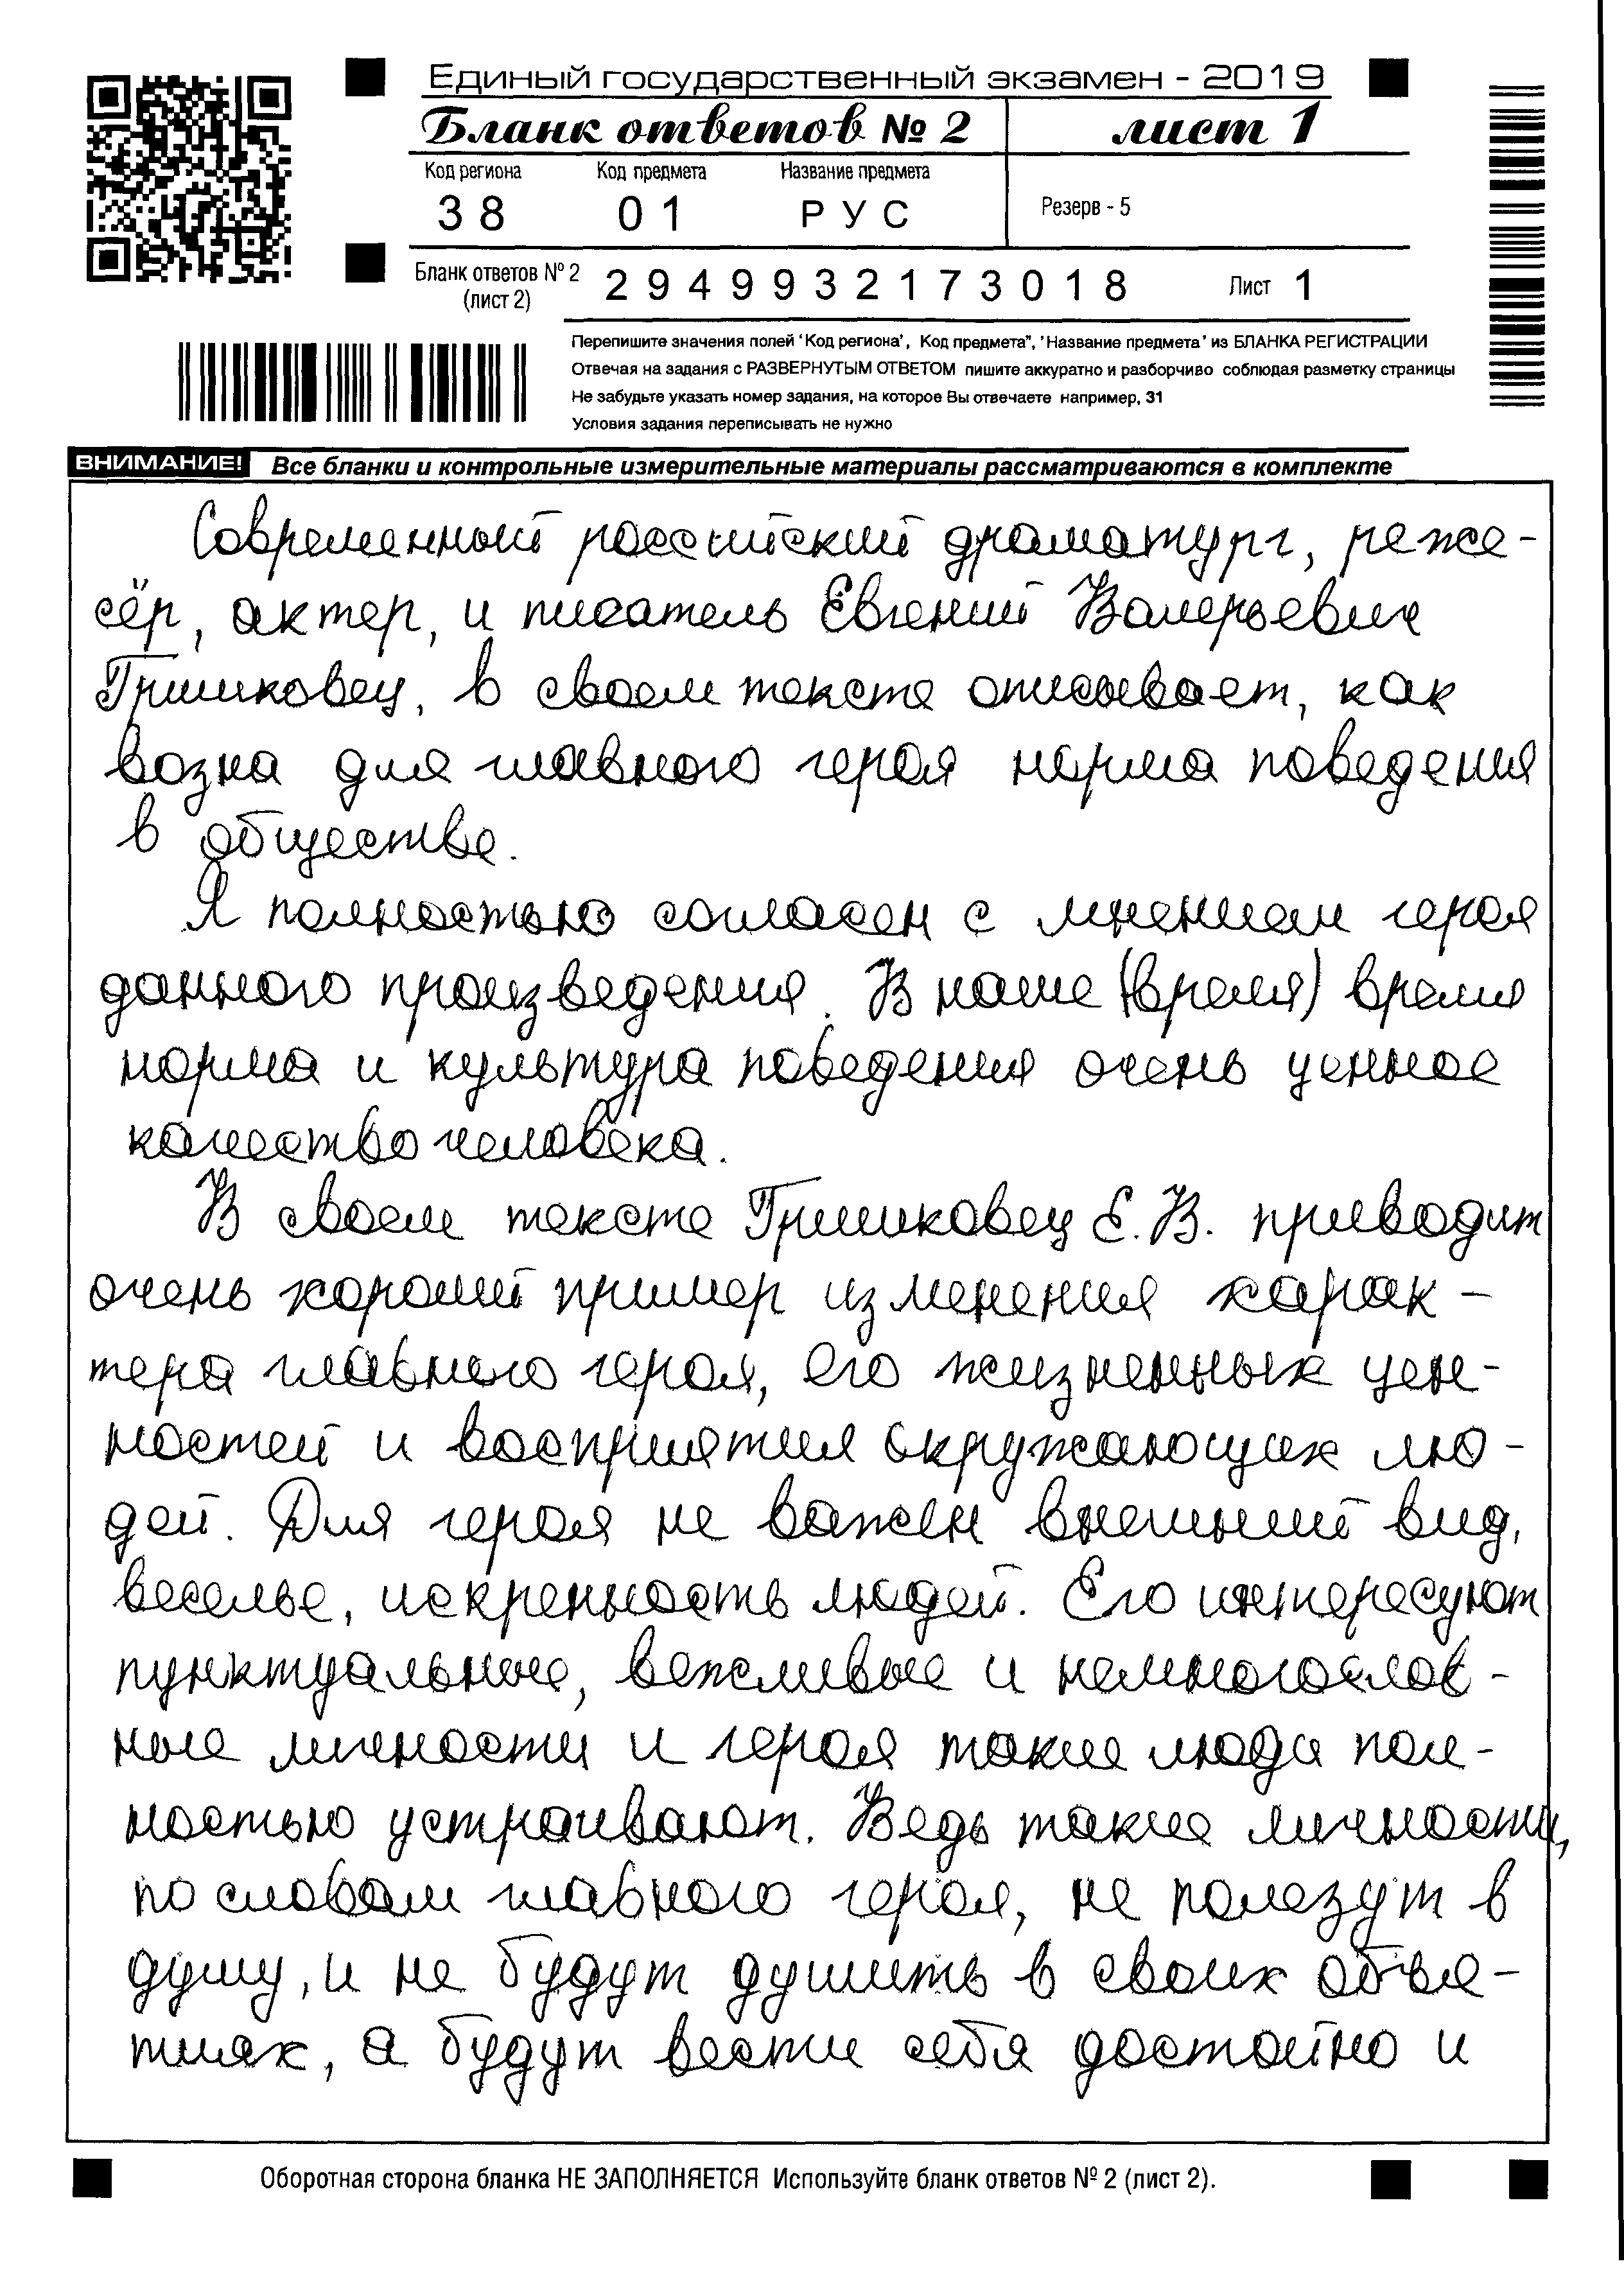 Единый государственный экзамен - 2019
Бланк ответов № 2
лист 1
Код региона Код предмета Название предмета
38 01 РУС
Резерв - 5
Бланк ответов № 2
(лист 2)
2949932173018
Лист 1
Перепишите значения полей "Код региона", Код предмета", "Название предмета" из БЛАНКА РЕГИСТРАЦИИ
Отвечая на задания с РАЗВЕРНУТЫМ ОТВЕТОМ пишите аккуратно и разборчиво соблюдая разметку страницы
Не забудьте указать номер задания, на которое Вы отвечаете например, 31
Условия задания переписывать не нужно
ВНИМАНИЕ! Все бланки и контрольные измерительные материалы рассматриваются в комплекте
Современный российский драматург, реже-
сёр, актер, и писатель Евгений Валерьевич
Гришковец, в своем тексте описывает, как
возна для главного героя норма поведения
в обществе.
Я полностью согласен с мнением героя
данного произведения. В наше (время) время
норма и культура поведения очень ценное
качество человека.
В своем тексте Гришковец Е. В. приводит
очень хороший пример изменения харак-
тера главного героя, его жизненных цен-
ностей и восприятия окружающих лю-
дей. Для героя не важен внешний вид,
веселье, искренность людей. Его интересуют
пунктуальные, вежливые и немногослов-
ные личности и героя такие люди пол-
ностью устраивают. Ведь такие личности,
по словам главного героя, не полезут в
душу, и не будут душить в своих объя-
тиях, а будут вести себя достойно и
Оборотная сторона бланка НЕ ЗАПОЛНЯЕТСЯ Используйте бланк ответов № 2 (лист 2).